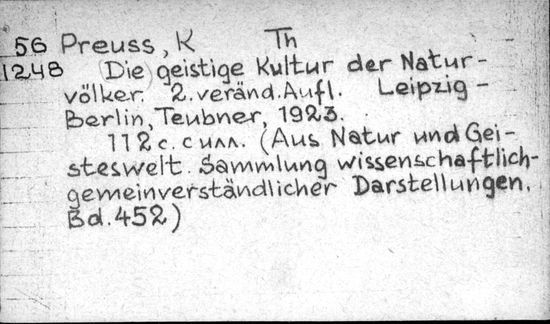 56 Preuss, K Th
1248 (Die) geistige Kultur der Natur-
völker. 2. veränd. Aufl. Leipzig -
Berlin, Teubner, 1923.
112 с. с илл. (Aus Natur und Gei-
steswelt. Sammlung wissenschaftlich-
gemeinverständlicher Darstellungen.
Bd. 452)